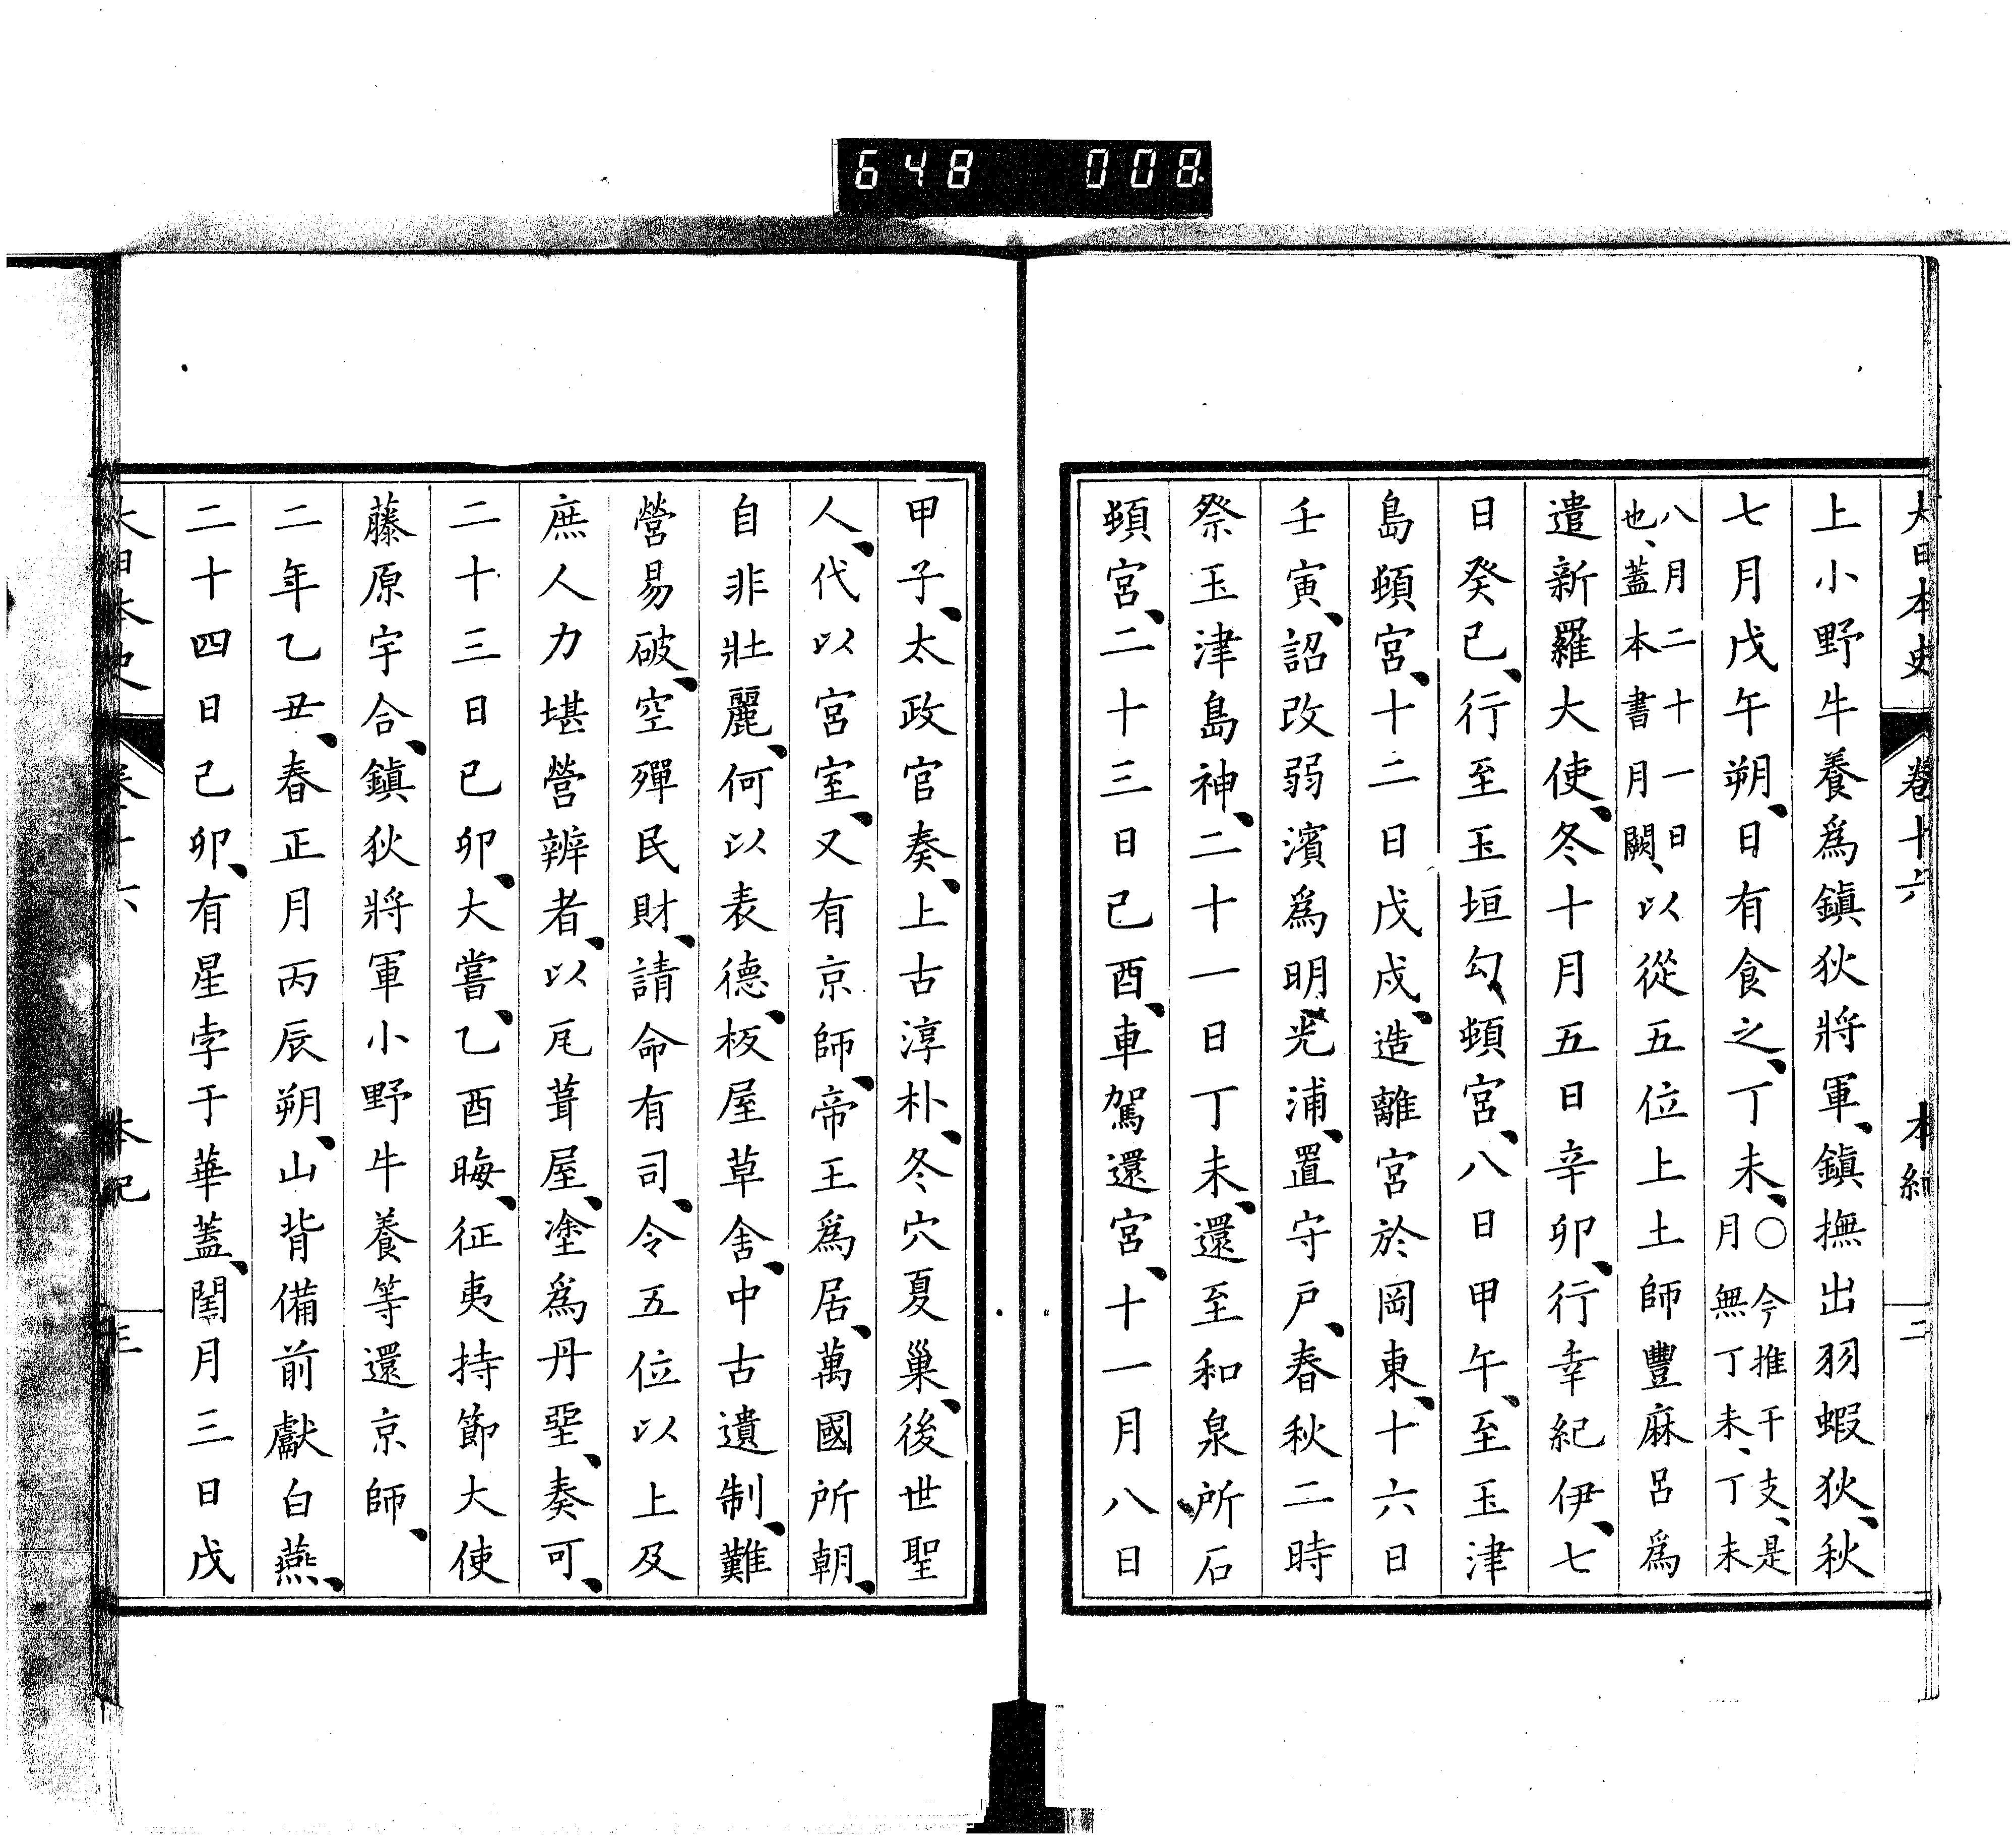 648 008
大日本史 卷十六 本紀 二
上小野牛養爲鎮狄將軍、鎮撫出羽蝦狄、秋
七月戊午朔、日有食之、丁未、〇今推干支、是月無丁未、丁未
八月二十一日也、蓋本書月闕、以從五位上土師豐麻呂爲
遣新羅大使、冬十月五日辛卯、行幸紀伊、七
日癸巳、行至玉垣勾頓宮、八日甲午、至玉津
島頓宮、十二日戊戌、造離宮於岡東、十六日
壬寅、詔改弱濱爲明光浦、置守戶、春秋二時
祭玉津島神、二十一日丁未、還至和泉所石
頓宮、二十三日己酉、車駕還宮、十一月八日
甲子、太政官奏、上古淳朴、冬穴夏巢、後世聖
人、代以宮室、又有京師、帝王爲居、萬國所朝、
自非壯麗、何以表德、板屋草舍、中古遺制、難
營易破、空殫民財、請命有司、令五位以上及
庶人力堪營辨者、以瓦葺屋、塗爲丹堊、奏可、
二十三日己卯、大嘗、乙酉晦、征夷持節大使
藤原宇合、鎮狄將軍小野牛養等還京師、
二年乙丑、春正月丙辰朔、山背備前獻白燕、
二十四日己卯、有星孛于華蓋、閏月三日戊
大日本史 卷十六 本紀 三